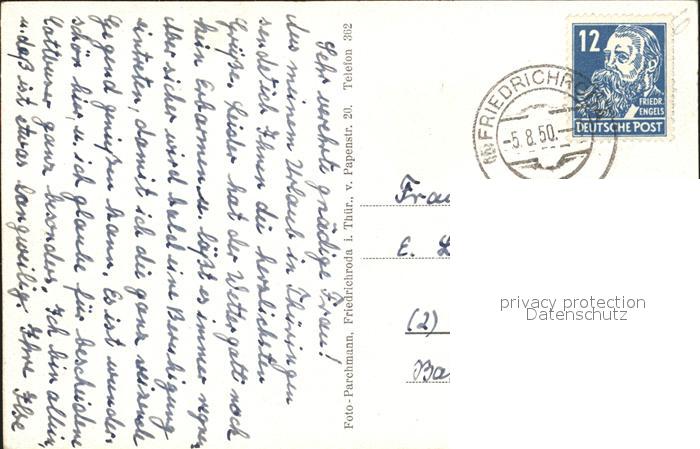 Sehr verehrte gnädige Frau!
Aus meinem Urlaub in Thüringen
sende ich Ihnen die herzlichsten
Grüße. Leider hat der Wettergott noch
kein Erbarmen u. läßt es immer regnen,
Aber sicher wird bald eine Beruhigung
eintreten, damit ich die ganz reizende
Gegend genießen kann. Es ist wunder-
schön hier, u. ich glaube für bescheidene
Cottbuser ganz besonders. Ich bin allein,
u. das ist etwas langweilig. Ihre Ilse
Foto-Parchmann, Friedrichroda i. Thür., v. Papenstr. 20, Telefon 362
12
FRIEDR.
ENGELS
DEUTSCHE POST
FRIEDRICHRO
-5.8.50.-
Frau
E.
(2)
Ba
privacy protection
Datenschutz